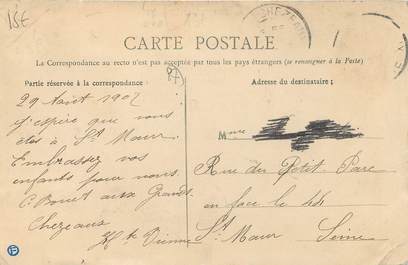 15E
CARTE POSTALE
La Correspondance au recto n'est pas acceptée par tous les pays étrangers (se renseigner à la Poste)
Partie réservée à la correspondance
Adresse du destinataire;
29 Août 1902
J'espère que vous
êtes à St Maur.
Embrassez vos
enfants pour nous.
C. Bonet aux Grands
Chezeaux
Hte Vienne
Mme
Rue du Petit Parc
en face le 44
St Maur Seine